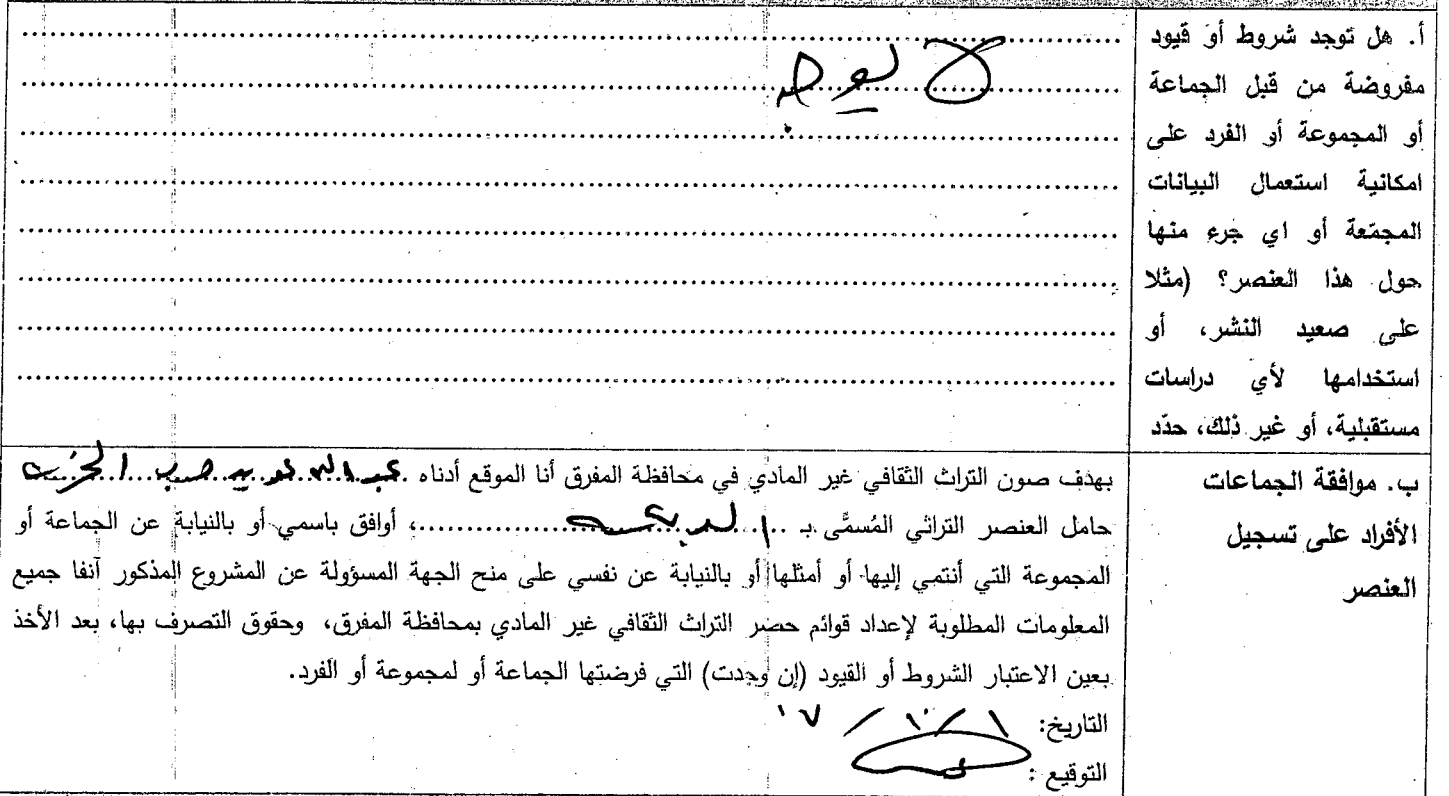 أ. هل توجد شروط أو قيود
مفروضة من قبل الجماعة
أو المجموعة أو الفرد على
امكانية استعمال البيانات
المجمّعة أو اي جزء منها
حول هذا العنصر؟ (مثلا
على صعيد النشر، أو
استخدامها لأي دراسات
مستقبلية، أو غير ذلك، حدّد
لا يوجد
ب. موافقة الجماعات
الأفراد على تسجيل
العنصر
بهدف صون التراث الثقافي غير المادي في محافظة المفرق أنا الموقع أدناه
حامل العنصر التراثي المُسمَّى بـ ، أوافق باسمي أو بالنيابة عن الجماعة أو
المجموعة التي أنتمي إليها أو أمثلها أو بالنيابة عن نفسي على منح الجهة المسؤولة عن المشروع المذكور آنفا جميع
المعلومات المطلوبة لإعداد قوائم حصر التراث الثقافي غير المادي بمحافظة المفرق، وحقوق التصرف بها، بعد الأخذ
بعين الاعتبار الشروط أو القيود (إن وجدت) التي فرضتها الجماعة أو لمجموعة أو الفرد.
التاريخ:
التوقيع :